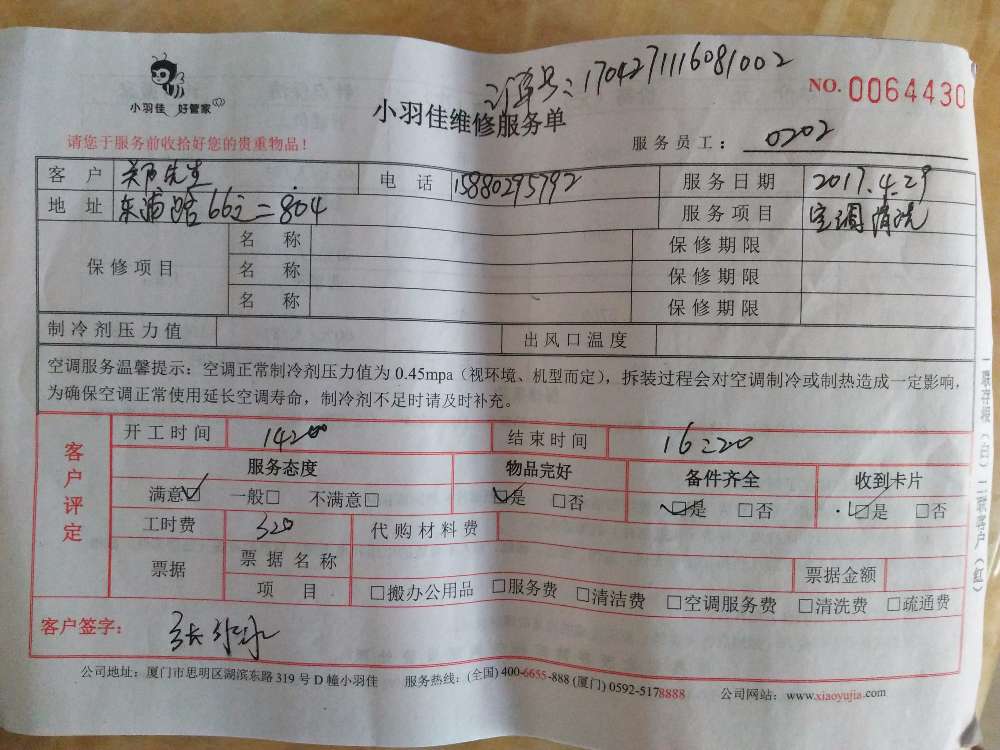 订单号：1704271116081002
小羽佳 好管家
NO.0064430
小羽佳维修服务单
请您于服务前收拾好您的贵重物品！
服务员工： 0202
客户 先生 电话 15880295792 服务日期 2017.4.29
地址 东浦路66之二804 服务项目 空调清洗
保修项目 名称 保修期限
名称 保修期限
名称 保修期限
制冷剂压力值 出风口温度
空调服务温馨提示：空调正常制冷剂压力值为 0.45mpa（视环境、机型而定），拆装过程会对空调制冷或制热造成一定影响，
为确保空调正常使用延长空调寿命，制冷剂不足时请及时补充。
客户评定
开工时间 结束时间
服务态度 物品完好 备件齐全 收到卡片
满意□ 一般□ 不满意□ □是 □否 □是 □否 □是 □否
工时费 320 代购材料费
票据 票据名称 票据金额
项目 □搬办公用品 □服务费 □清洁费 □空调服务费 □清洗费 □疏通费
客户签字：
公司地址：厦门市思明区湖滨东路 319 号 D 幢小羽佳 服务热线：(全国) 400-6655-888 (厦门) 0592-5178888 公司网站：www.xiaoyujia.com
一联存根（白）二联客户（红）